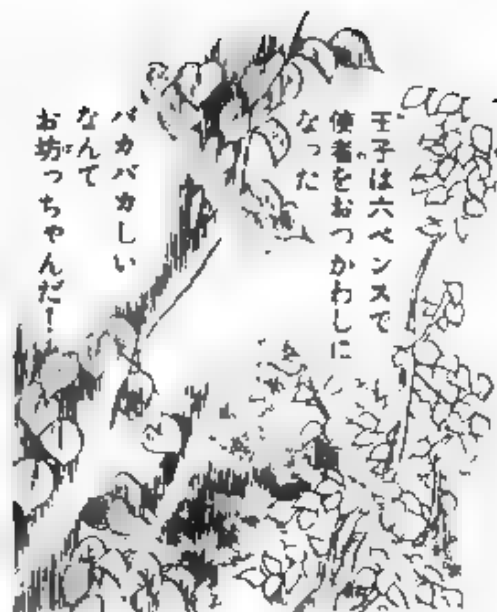 王子は六ペンスで
使者をおつかわしに
なった
バカバカしい
なんて
お坊っちゃんだ!